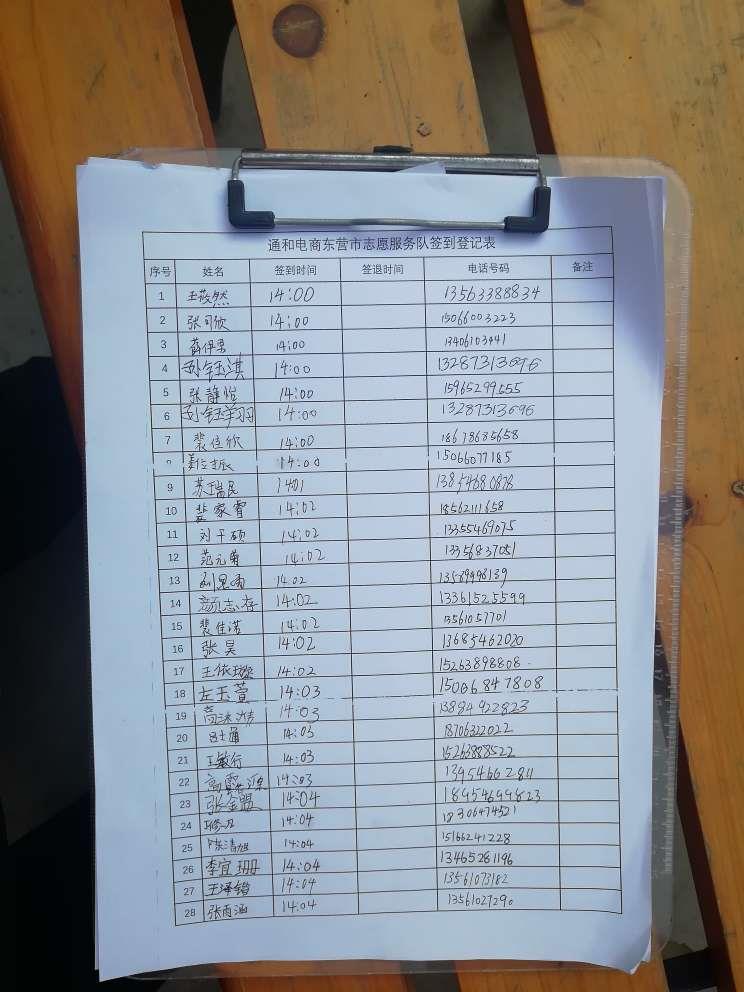 通和电商东营市志愿服务队签到登记表
序号 姓名 签到时间 签退时间 电话号码 备注
1 王筱然 14:00 13563388834
2 张可欣 14:00 15066003223
3 14:00 13406103441
4 孙钰淇 14:00 13287313696
5 张静怡 14:00 15965299555
6 孙钰羊羽 14:00 13287313696
7 裴佳欣 14:00 18678685658
8 14:00 15066077185
9 苏瑞民 1401 13854680878
10 裴家睿 14:02 18562111658
11 刘子硕 14:02 13355469075
12 范元菊 14:02 13356837051
13 刘思雨 14:02 13589998139
14 颜志存 14:02 13361525599
15 裴佳诺 14:02 13561057701
16 张昊 14:02 13685462020
17 王依璇 14:02 15263898808
18 左玉萱 14:03 15006847808
19 14:03 13894922823
20 吕士通 14:03 18706322022
21 王敏行 14:03 15263888522
22 14:03 13954662811
23 张金盟 14:04 18954699823
24 14:04 18306474521
25 陈清旭 14:04 15166241228
26 李宜珊 14:04 13465281196
27 14:04 13561073182
28 张雨涵 14:04 13561027290